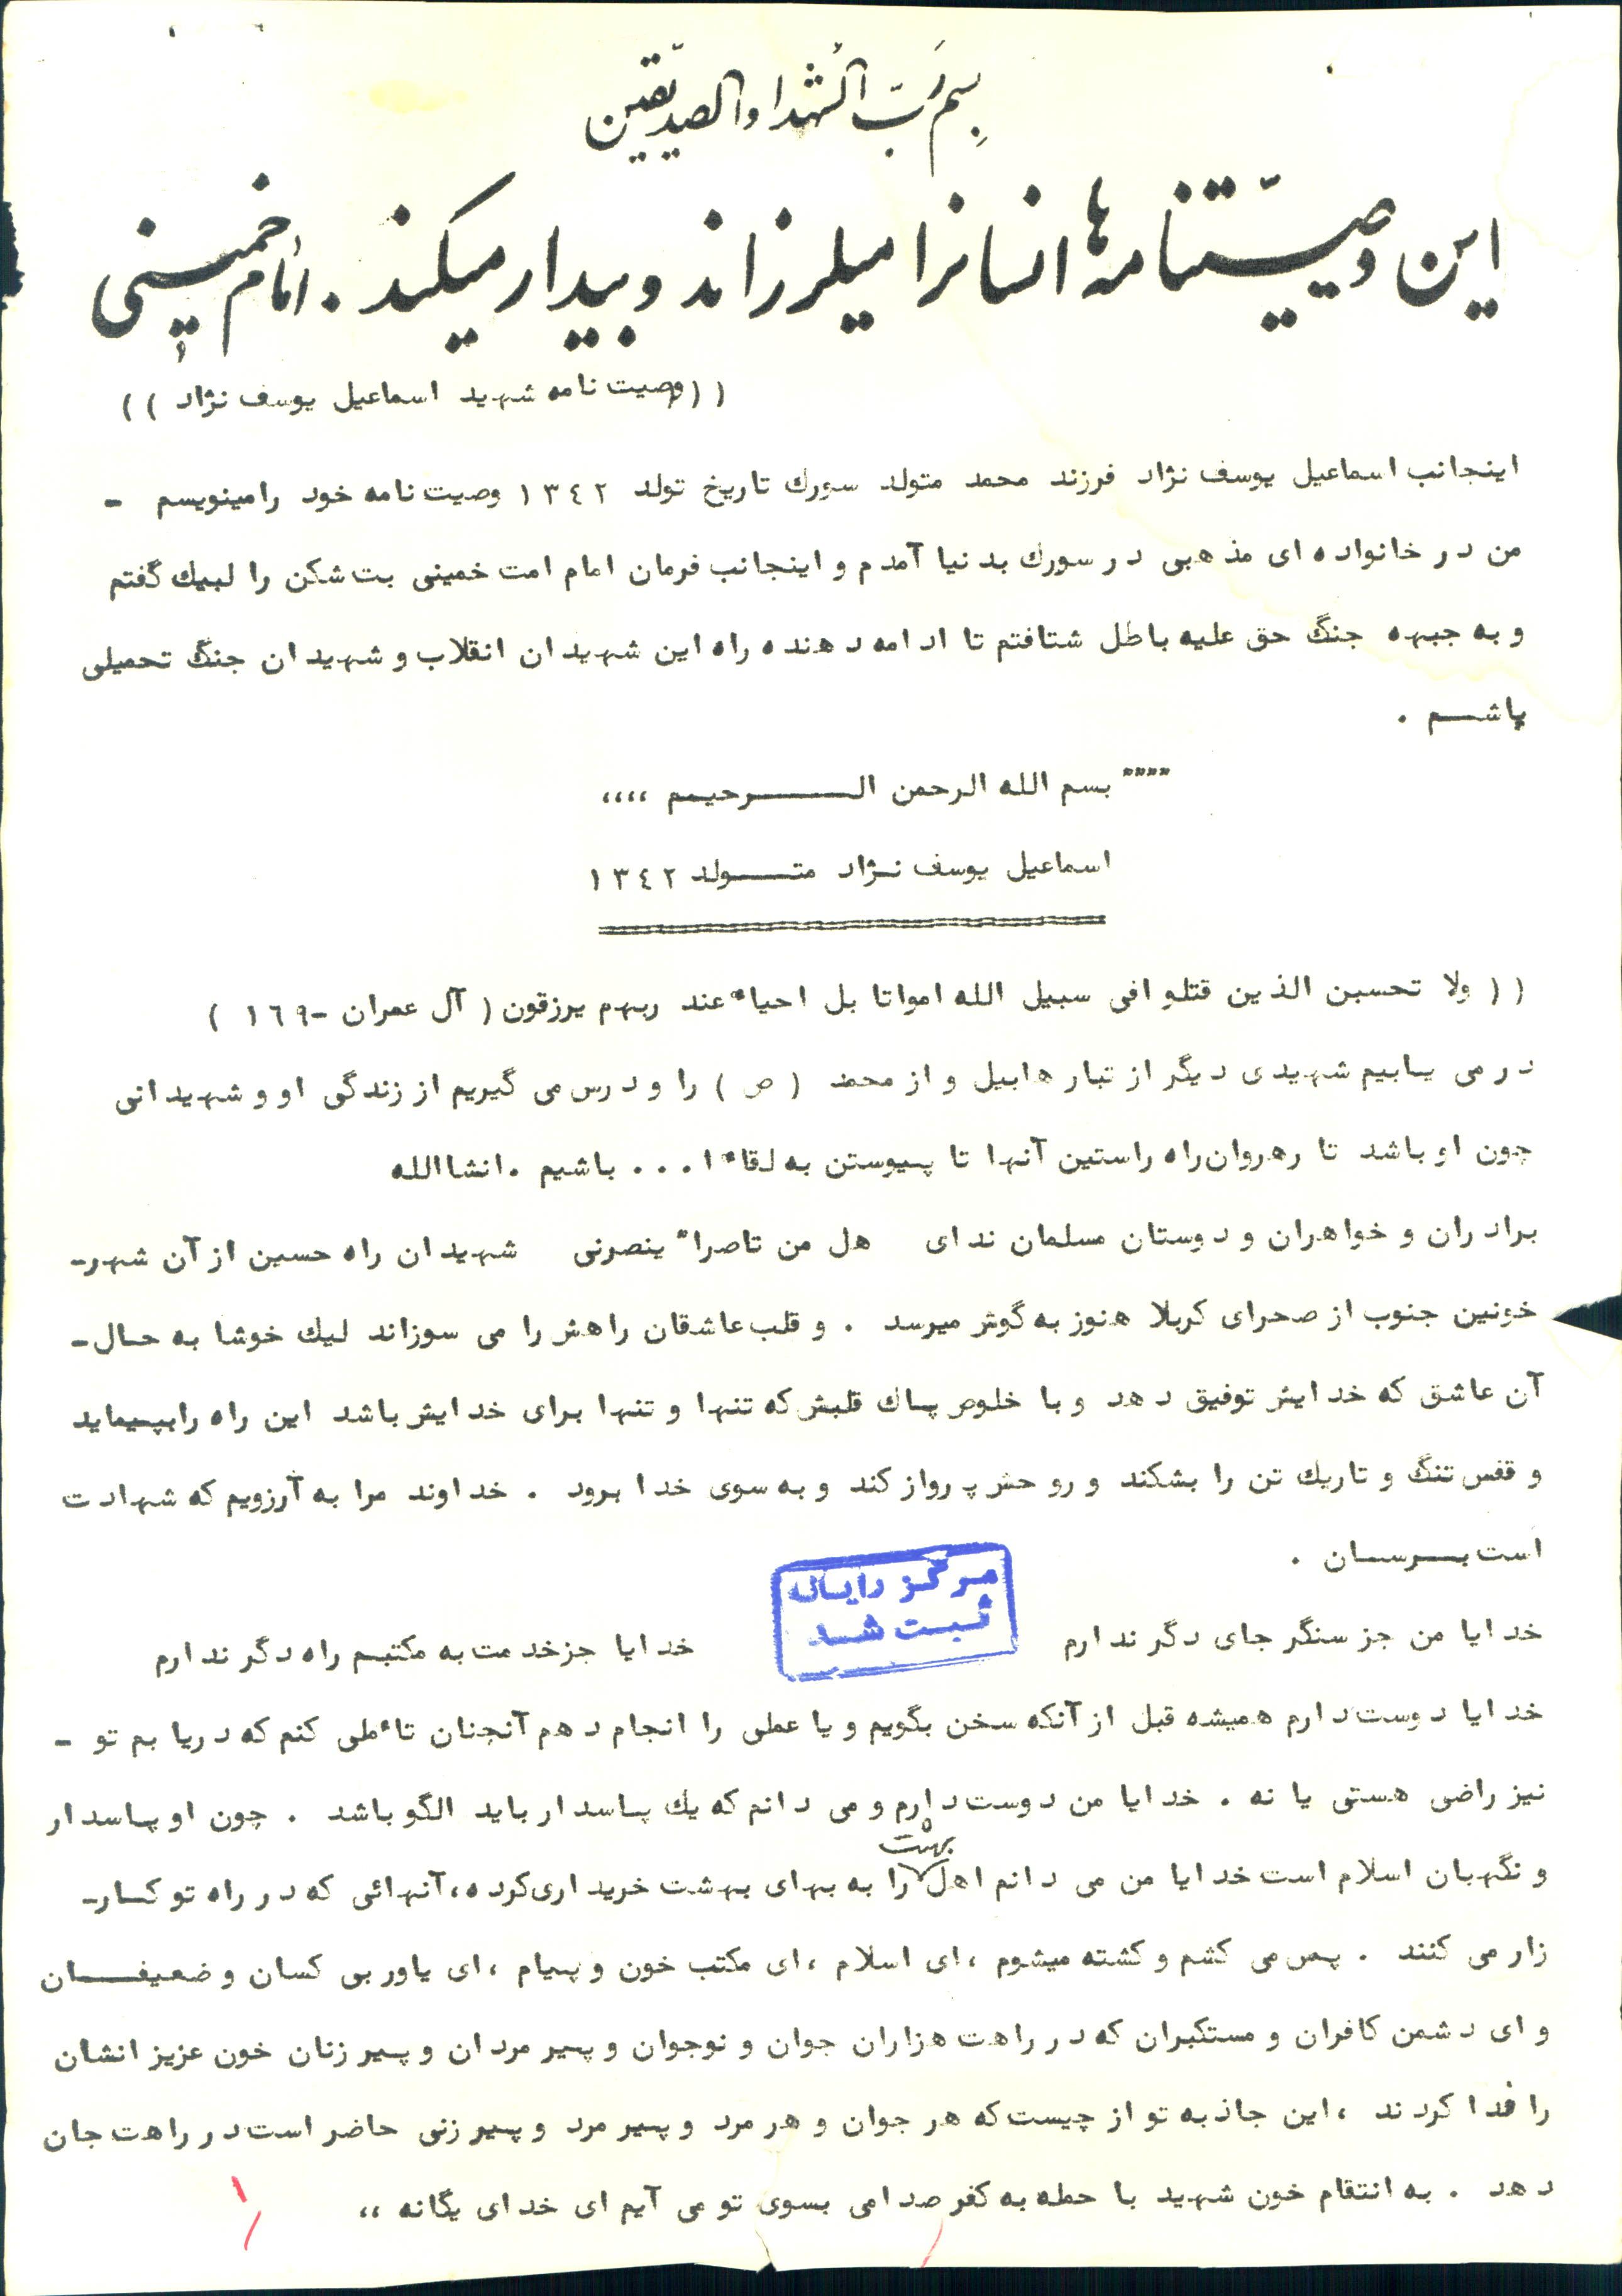 بسم رَبّ الشهداء والصدیقین
این وصیّتنامه‌ها انسانرا میلرزاند و بیدار میکند . امام خمینی
((وصیت نامه شهید اسماعیل یوسف نژاد ))
اینجانب اسماعیل یوسف نژاد فرزند محمد متولد سورك تاریخ تولد ۱۳٤۲ وصیت نامه خود رامینویسم -
من در خانواده ای مذهبی در سورك بدنیا آمدم و اینجانب فرمان امام امت خمینی بت شکن را لبیك گفتم
و به جبهه جنگ حق علیه باطل شتافتم تا ادامه دهنده راه این شهیدان انقلاب و شهیدان جنگ تحمیلی
باشـــم .
"""" بسم الله الرحمن الــــــرحیم ،،،،
اسماعیل یوسف نـژاد متـــولد ۱۳٤۲
(( ولا تحسبن الذین قتلو افی سبیل الله امواتا بل احیاء عند ربهم یرزقون ( آل عمران -۱٦۹ )
در می یـابیم شهیدی دیگر از تبار هابیل و از محمد ( ص ) را و درس می گیریم از زندگی او و شهیدانی
چون او باشد تا رهروان راه راستین آنها تا پـیوستن به لقاء ا... باشیم .انشاالله
برادران و خواهران و دوستان مسلمان ندای هل من ناصراً ینصرنی شهیدان راه حسین از آن شهر-
خونین جنوب از صحرای کربلا هنوز به گوش میرسد . و قلب عاشقان راهش را می سوزاند لیك خوشا به حـال-
آن عاشق که خدایش توفیق دهد و با خلوص پـاك قلبش که تنها و تنها برای خدایش باشد این راه رابپـیماید
و قفس تنگ و تاریك تن را بشکند و روحش پرواز کند و به سوی خدا برود . خداوند مرا به آرزویم که شهادت
است بـــرسـان .
خدایا من جز سنگر جای دگر ندارم خدایا جزخدمت به مکتبـم راه دگر ندارم
مرکز رایانه
ثبت شد
خدایا دوست دارم همیشه قبل از آنکه سخن بگویم و یا عملی را انجام دهم آنچنان تاءملی کنم که دریا بم تو -
نیز راضی هستی یا نه . خدایا من دوست دارم و می دانم که یك پـاسدار باید الگو باشد . چون او پـاسدار
و نگهبان اسلام است خدایا من می دانم اهل بهشت را به بهای بهشت خریداری کرده ،آنهائی که در راه تو کـار-
زار می کنند . پـس می کشم و کشته میشوم ،ای اسلام ،ای مکتب خون و پـیام ،ای یاور بی کسان و ضعیفـــان
و ای دشمن کافران و مستکبران که در راهت هزاران جوان و نوجوان و پـیر مردان و پـیر زنان خون عزیز انشان
را فدا کردند ،این جاذبه تو از چیست که هر جوان و هر مرد و پـیر مرد و پـیر زنی حاضر است در راهت جان
دهد . به انتقام خون شهید با حمله به کفر صدامی بسوی تو می آیم ای خدای یگانه ،،